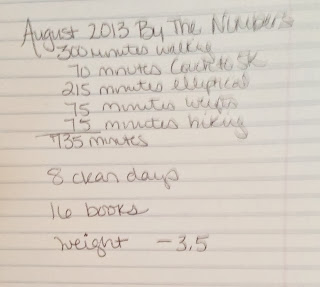 August 2013 By The Numbers
300 minutes walking
70 minutes Couch to 5K
215 minutes elliptical
75 minutes weights
75 minutes hiking
735 minutes
8 clean days
16 books
weight -3.5